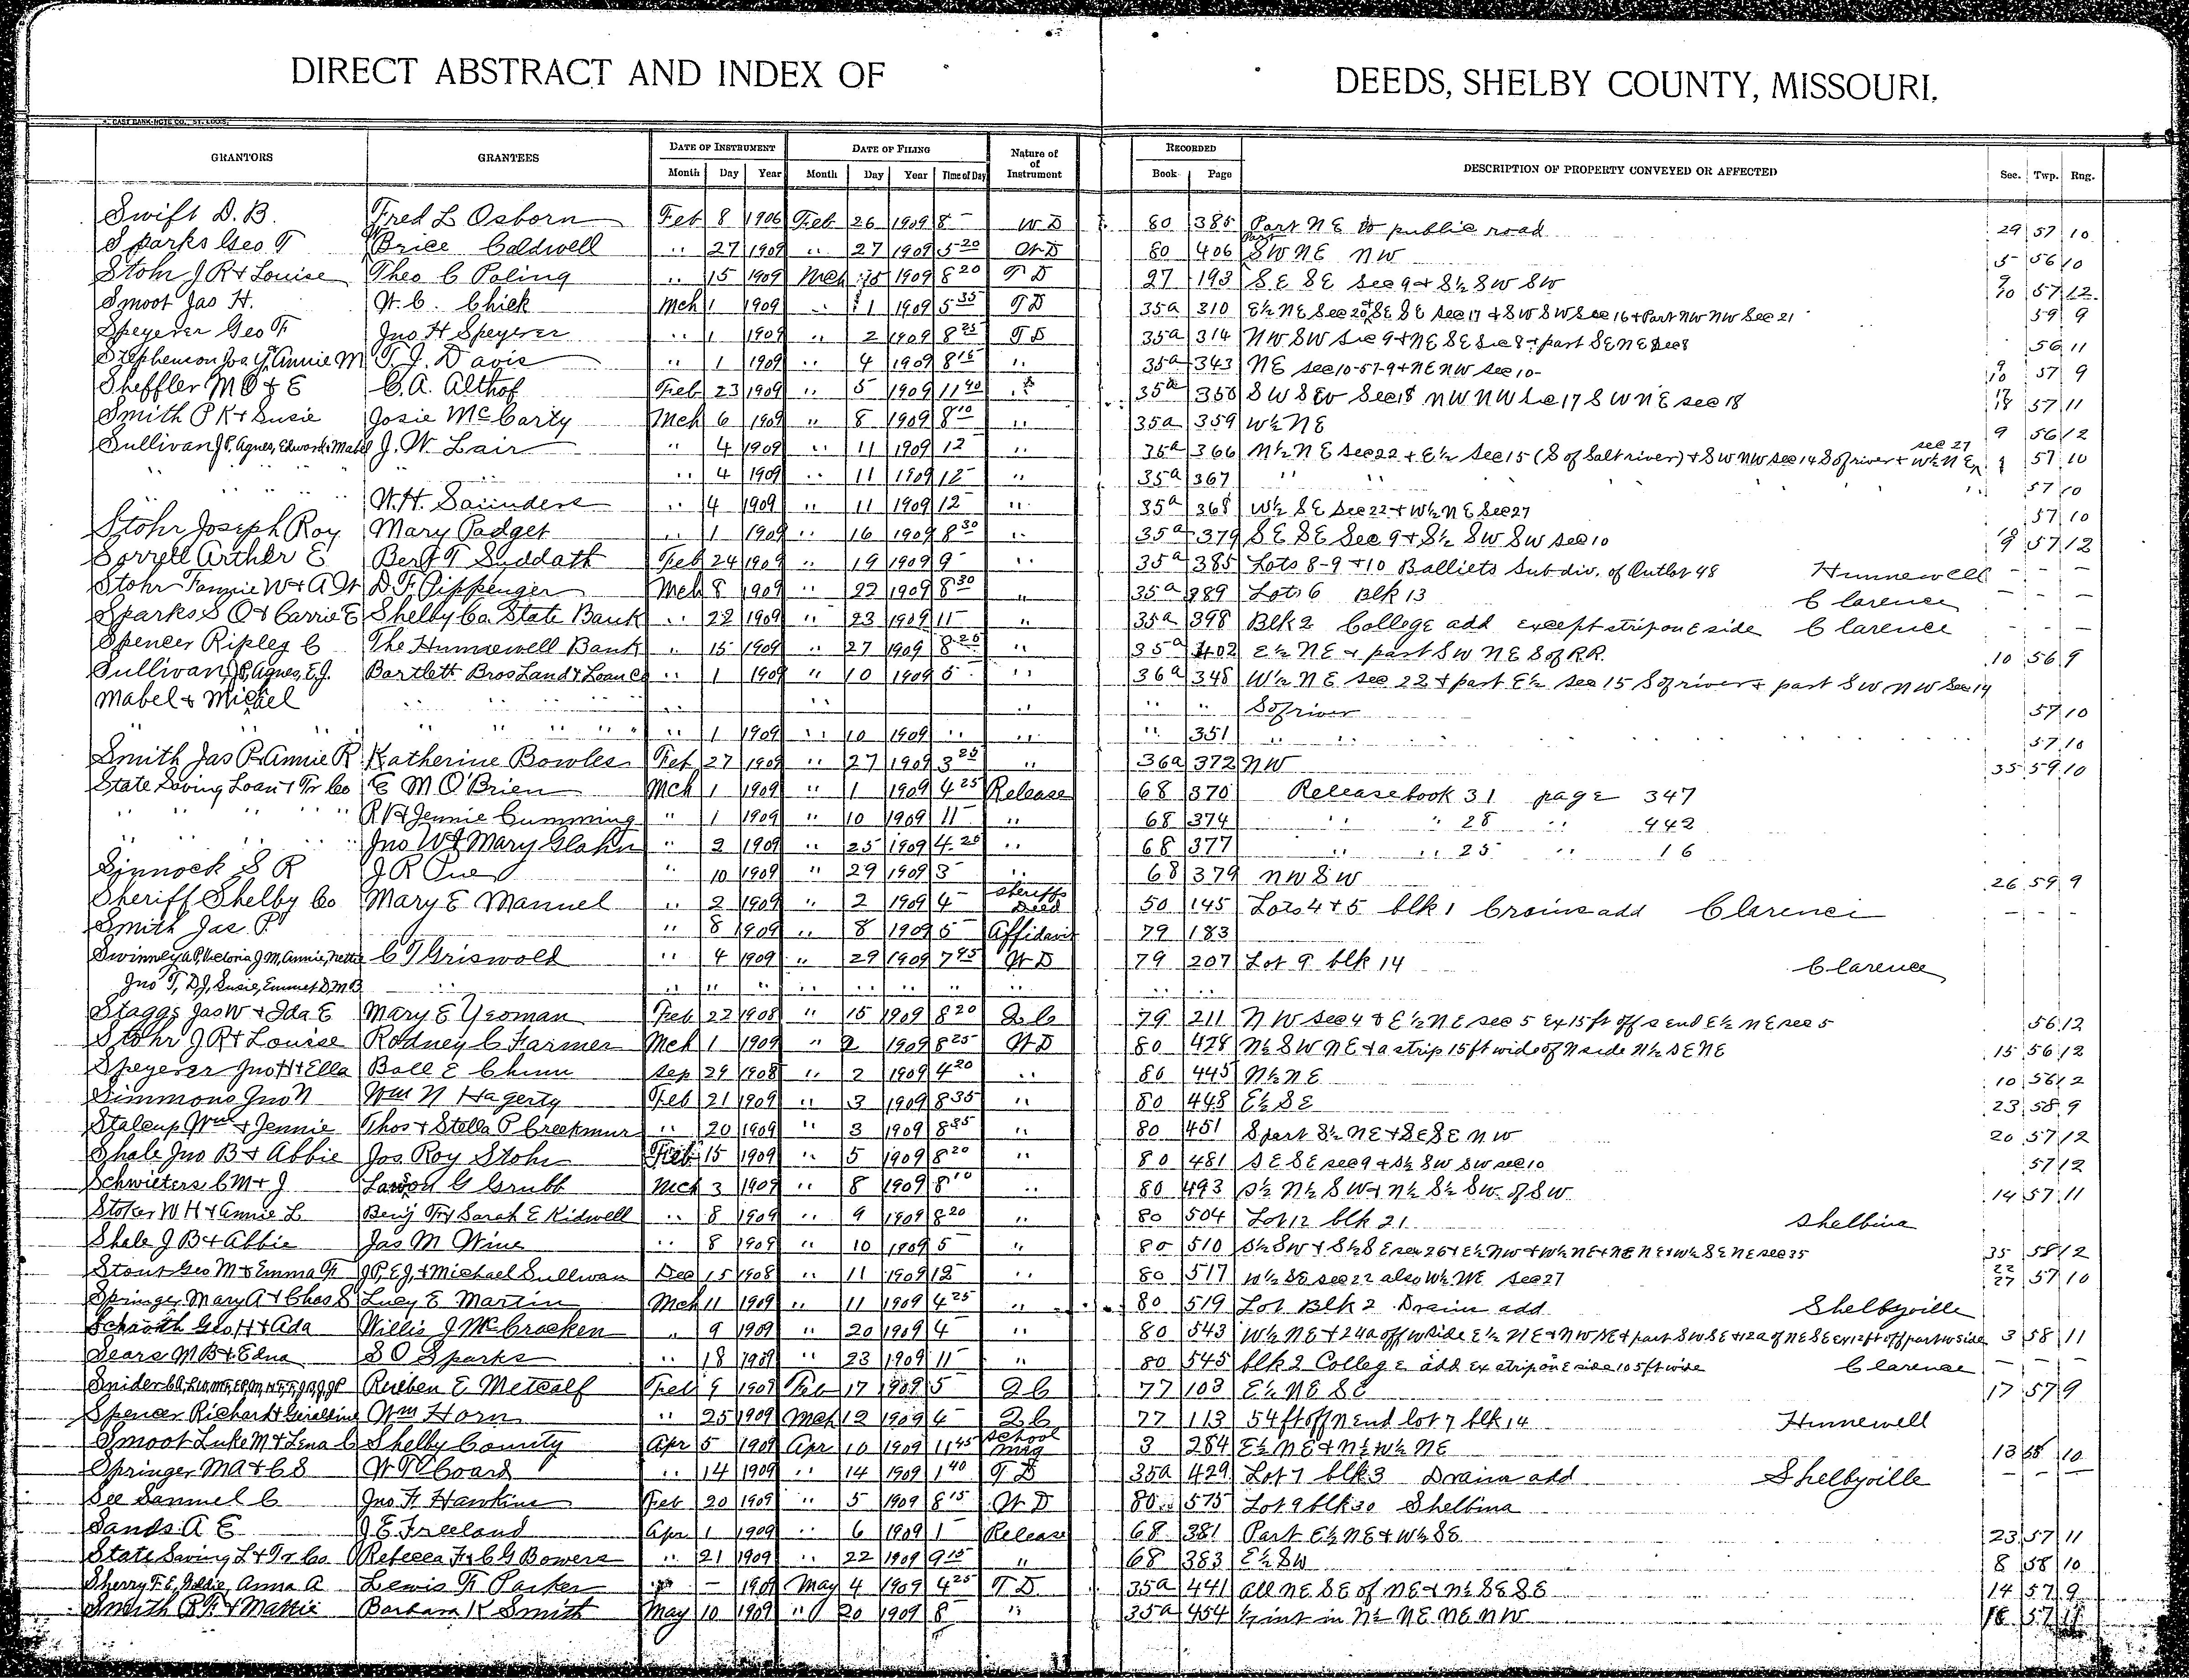 DIRECT ABSTRACT AND INDEX OF DEEDS, SHELBY COUNTY, MISSOURI.
GRANTORS GRANTEES DATE OF INSTRUMENT DATE OF FILING Nature of of Instrument RECORDED DESCRIPTION OF PROPERTY CONVEYED OR AFFECTED Sec. Twp. Rng.
Month Day Year Month Day Year Time of Day Book Page
Swift D. B. Fred L Osborn Feb 8 1906 Feb 26 1909 8 W D 80 385 Part N E public road 29 57 10
Sparks Geo T Brice Caldwell " 27 1909 " 27 1909 5 20 W D 80 406 Part S W N E N W 5 56 10
Stohr J R & Louise Theo C Poling " 15 1909 Mch 1909 8 20 T D 27 193 S E S E Sec 9 & S½ S W S W 9 10 57 12
Smoot Jas H. W. C. Chick Mch 1 1909 " 1 1909 5 35 T D 35a 310 E½ N E Sec 20 & S E S E Sec 17 & S W S W Sec 16 & Part N W N W Sec 21 59 9
Speyerer Geo F Jno H Speyerer " 1 1909 " 2 1909 8 25 T D 35a 314 N W S W Sec 9 & N E S E Sec 8 & part S E N E Sec 8 56 11
Stephenson Annie M T. J. Davis " 1 1909 " 4 1909 8 15 " 35a 343 N E Sec 10-57-9 & N E N W Sec 10- 9 10 57 9
Sheffler M O & E C. A. Althof Feb 23 1909 " 5 1909 11 40 " 35a S W Sec 18 N W N W Sec 17 S W N E Sec 18 17 18 57 11
Smith P K & Susie Josie McCarty Mch 6 1909 " 8 1909 8 10 " 35a 359 W½ N E 9 56 12
Sullivan J P, Agnes, Edward & Mabel J. W. Lair " 4 1909 " 11 1909 12 " 35a 366 N½ N E Sec 22 & E½ Sec 15 (S of Salt river) & S W N W Sec 14 S of river & W½ N E sec 27 57 10
" " " " " 4 1909 " 11 1909 12 " 35a 367 " " " " 57 10
W. H. Saunders " 4 1909 " 11 1909 12 " 35a 368 W½ S E Sec 22 & W½ N E Sec 27 57 10
Stohr Joseph Roy Mary Padget " 1 1909 " 16 1909 8 30 " 35a 379 S E S E Sec 9 & S½ S W S W Sec 10 10 9 57 12
Sorrell Arther E Bert T Suddath Feb 24 1909 " 19 1909 9 " 35a 385 Lots 8-9 & 10 Balliets Sub div. of Outlot 48 Hunnewell - - -
Stohr Fannie W & A W D. F. Pippenger Mch 8 1909 " 22 1909 8 30 " 35a 389 Lot 6 Blk 13 Clarence - - -
Sparks S O & Carrie E Shelby Co. State Bank " 22 1909 " 23 1909 11 " 35a 398 Blk 2 College add except strip on E side Clarence - - -
Spencer Ripley C The Hunnewell Bank " 15 1909 " 27 1909 8 25 " 35a 402 E½ N E & part S W N E S of R.R. 10 56 9
Sullivan J P, Agnes, E. J. Bartlett Bros Land & Loan Co " 1 1909 " 10 1909 5 " 36a 348 W½ N E Sec 22 & part E½ Sec 15 S of river & part S W N W Sec 14
Mabel & Michel " " " " " " S of river 57 10
" " " " " " 1 1909 " 10 1909 " " " 351 " " " " 57 10
Smith Jas P & Annie R Katherine Bowles Feb 27 1909 " 27 1909 3 25 " 36a 372 N W 35 59 10
State Saving Loan & Tr Co E M O'Brien Mch 1 1909 " 1 1909 4 25 Release 68 370 Release book 31 page 347
" " " " R H & Jennie Cumming " 1 1909 " 10 1909 11 " 68 374 " " 28 " 442
" " " " Jno W & Mary Glahn " 2 1909 " 25 1909 4 20 " 68 377 " " 25 " 16
Sinnock S R J R Pue " 10 1909 " 29 1909 3 " 68 379 N W S W 26 59 9
Sheriff Shelby Co Mary E Manuel " 2 1909 " 2 1909 4 Sheriffs Deed 50 145 Lots 4 & 5 blk 1 Crains add Clarence - -
Smith Jas P. " 8 1909 " 8 1909 5 Affidavit 79 183
Swinney A P, Victoria J M, Annie, Nettie C T Griswold " 4 1909 " 29 1909 7 45 W D 79 207 Lot 9 blk 14 Clarence
Jno T, D J, Susie, Emmet D, M B " " " " " " " " " "
Staggs Jas W & Ida E Mary E Yeoman Feb 22 1908 " 15 1909 8 20 Q C 79 211 N W Sec 4 & E½ N E Sec 5 Ex 15 ft off S end E½ N E Sec 5 56 12
Stohr J R & Louise Rodney C Farmer Mch 1 1909 " 2 1909 8 25 W D 80 428 N½ S W N E & a strip 15 ft wide of N side N½ S E N E 15 56 12
Speyerer Jno H & Ella Ball E Chinn Sep 29 1908 " 2 1909 4 20 " 80 445 N½ N E 10 56 12
Simmons Jno N Wm N Hagerty Feb 21 1909 " 3 1909 8 35 " 80 448 E½ S E 23 58 9
Stalcup Wm & Jennie Thos & Stella P Creekmur " 20 1909 " 3 1909 8 35 " 80 451 S part S½ N E & S E S E N W 20 57 12
Shale Jno B & Abbie Jos Roy Stohr Feb 15 1909 " 5 1909 8 20 " 80 481 S E S E sec 9 & S½ S W S W sec 10 57 12
Schwieters C M & J Lawson G Grubb Mch 3 1909 " 8 1909 8 10 " 80 493 S½ N½ S W & N½ S½ S W. of S W 14 57 11
Stoker W H & Annie L Benj F & Sarah E Kidwell " 8 1909 " 9 1909 8 20 " 80 504 Lot 12 blk 21 Shelbina
Shale J B & Abbie Jas M Wine " 8 1909 " 10 1909 5 " 80 510 S½ S W & S½ S E sec 26 & E½ N W & W½ N E & N E N E & W½ S E N E sec 35 35 58 12
Stout Geo M & Emma F J P, E J, & Michael Sullivan Dec 15 1908 " 11 1909 12 " 80 517 W½ S E sec 22 also W½ N E sec 27 22 27 57 10
Springer Mary A & Chas S Lucy E Martin Mch 11 1909 " 11 1909 4 25 " 80 519 Lot Blk 2 Drains add Shelbyville
Schroth Geo H & Ada Willis J McCracken " 9 1909 " 20 1909 4 " 80 543 W½ N E & 24a off W side E½ N E & N W S E & part S W S E & 12a of N E S E Ex 12 ft off part W side 3 58 11
Sears M B & Edna S O Sparks " 18 1909 " 23 1909 11 " 80 545 blk 2 College add Ex strip on E side 105 ft wide Clarence - - -
Snider Reuben E Metcalf Feb 9 1909 Feb 17 1909 5 Q C 77 103 E½ N E S E 17 57 9
Spencer Richard & Geraldine Wm Horn " 25 1909 Mch 12 1909 4 Q C 77 113 54 ft off N end lot 7 blk 14 Hunnewell
Smoot Luke M & Lena C Shelby County Apr 5 1909 Apr 10 1909 11 45 School Mtg 3 284 E½ N E & N½ W½ N E 13 58 10
Springer M A & C S W T Coard " 14 1909 " 14 1909 1 40 T D 35a 429 Lot 7 blk 3 Drains add Shelbyville - - -
See Samuel C Jno F Hawkins Feb 20 1909 " 5 1909 8 15 W D 80 575 Lot 9 blk 30 Shelbina
Sands A E J. E. Freeland Apr 1 1909 " 6 1909 1 Release 68 381 Part E½ N E & W½ S E 23 57 11
State Saving L & Tr Co. Rebecca F & C G Bowers " 21 1909 " 22 1909 9 15 " 68 383 E½ S W 8 58 10
Sherry F E, Goldie, Anna A Lewis F Parker - 1909 May 4 1909 4 25 T D 35a 441 all N E S E of N E & N½ S E S E 14 57 9
Smith R F & Mattie Barbara K Smith May 10 1909 " 20 1909 8 " 35a 454 int in N½ N E N E N W 16 57 11